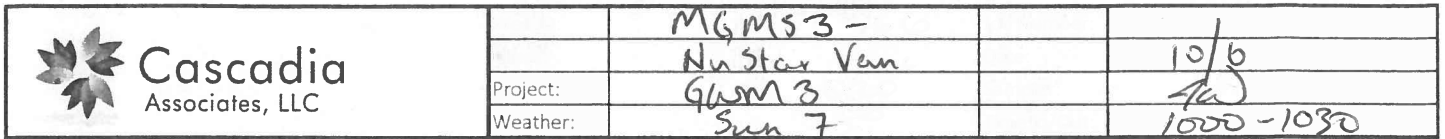 Cascadia
Associates, LLC
MGMS3-
NuStar Van 10/6
Project: GWM3
Weather: Sun 7 1000-1030